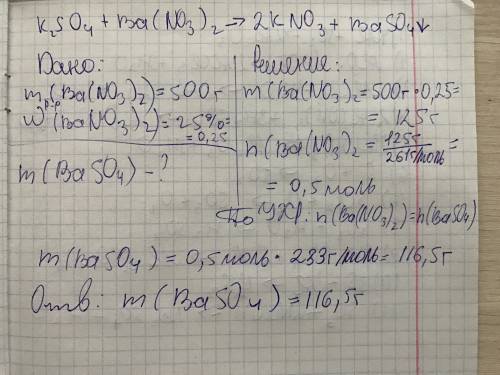 K₂SO₄ + Ba(NO₃)₂ → 2KNO₃ + BaSO₄↓
Дано:
mр-р(Ba(NO₃)₂) = 500г
W (Ba(NO₃)₂) = 25% =
= 0,25
m(BaSO₄) - ?
Решение:
m(Ba(NO₃)₂ = 500г · 0,25 =
= 125г
n(Ba(NO₃)₂ = 125г / 261г/моль =
= 0,5 моль
По УХР: n(Ba(NO₃)₂) = n(BaSO₄)
m(BaSO₄) = 0,5 моль · 233г/моль = 116,5г
Отв: m(BaSO₄) = 116,5г